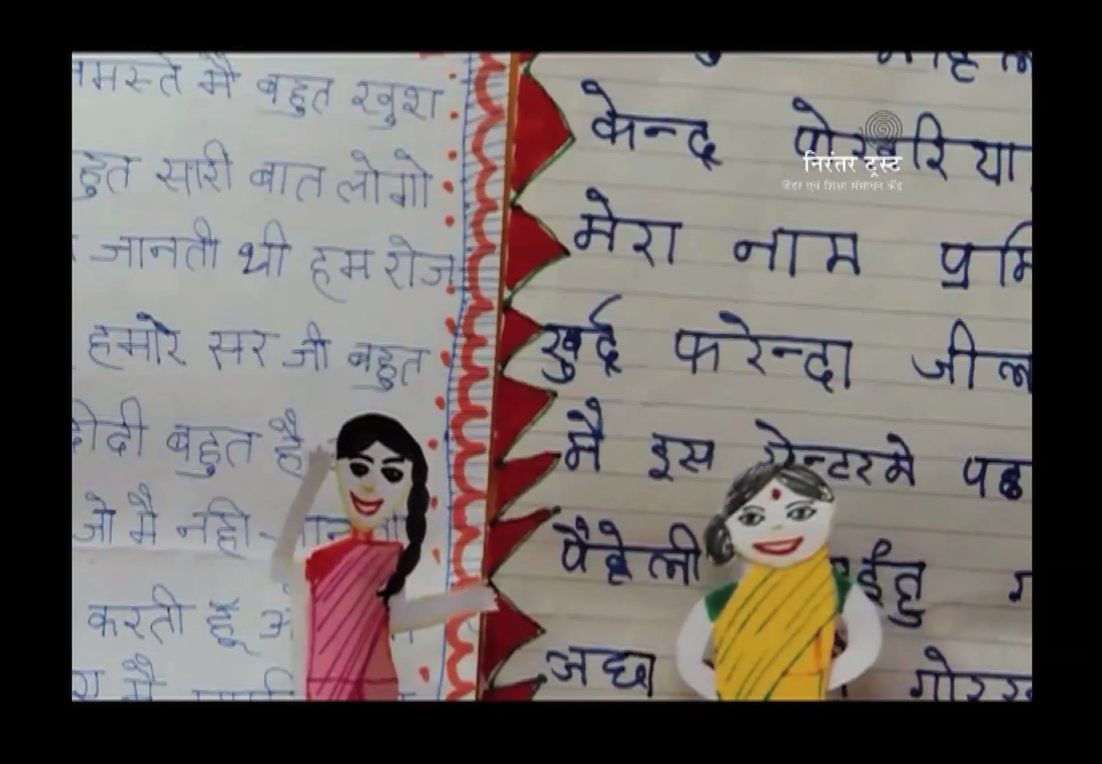 नमस्ते मै बहुत खुश
हुत सारी बात लोगो
जानती थी हम रोज
हमारे सर जी बहुत
दीदी बहुत है
जो मै नही
करती हूँ
मै
केन्द्र पोखरिया
मेरा नाम प्रमि
खुर्द फरेन्दा जील
मै इस सेन्टरमे पढ
पैहेली
जहा
गोरख
निरंतर ट्रस्ट
जेंडर एवं शिक्षा संसाधन केंद्र